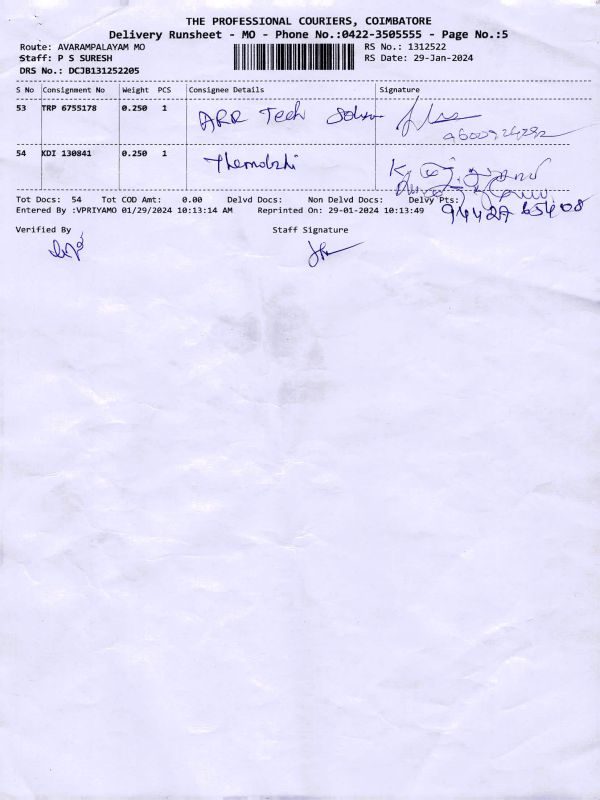 THE PROFESSIONAL COURIERS, COIMBATORE
Delivery Runsheet - MO - Phone No.:0422-3505555 - Page No.:5
Route: AVARAMPALAYAM MO RS No.: 1312522
Staff: P S SURESH RS Date: 29-Jan-2024
DRS No.: DCJB131252205
S No Consignment No Weight PCS Consignee Details Signature
53 TRP 6755178 0.250 1 ARR Tech
54 KDI 130841 0.250 1
Tot Docs: 54 Tot COD Amt: 0.00 Delvd Docs: Non Delvd Docs: Delvy Pts:
Entered By :VPRIYAMO 01/29/2024 10:13:14 AM Reprinted On: 29-01-2024 10:13:49 94427 65408
Verified By Staff Signature